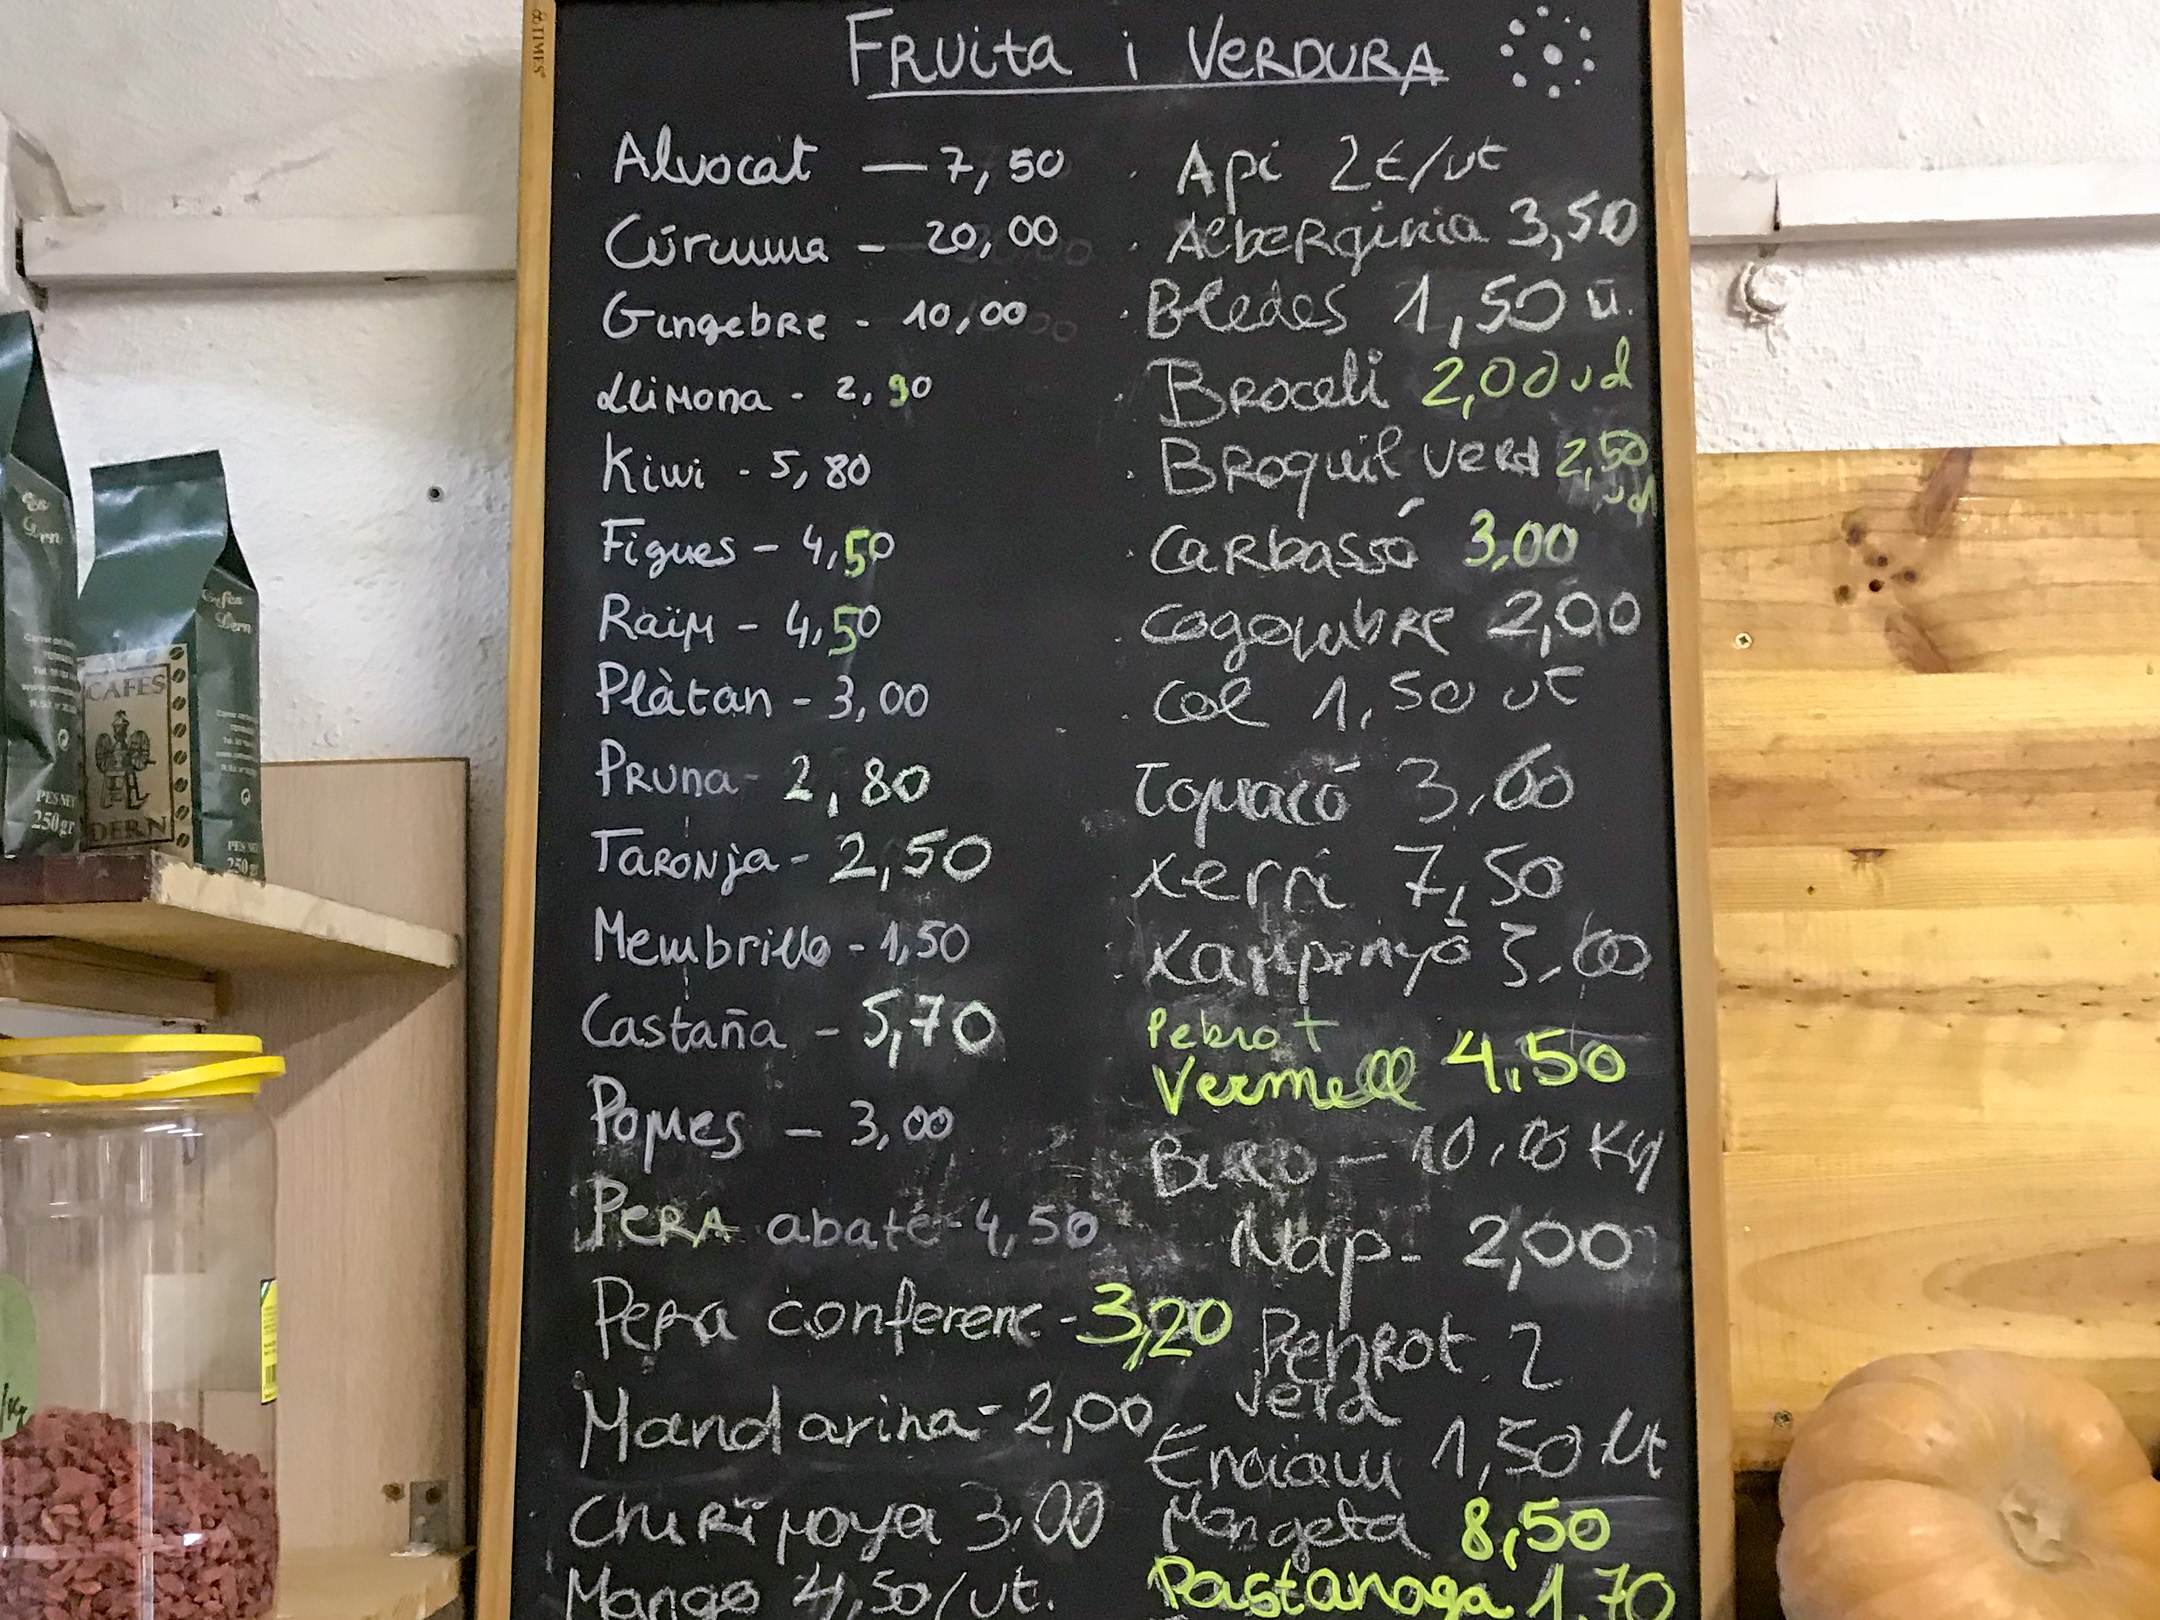 TIMES
FRUITA i VERDURA
Alvocat — 7,50
Cúrcuma – 20,00
Gingebre - 10,00
Llimona - 2,90
Kiwi - 5,80
Figues – 4,50
Raïm – 4,50
Plàtan – 3,00
PRUNA - 2,80
TARONja - 2,50
Membrillo - 1,50
Castaña – 5,70
Pomes – 3,00
PERA abate - 4,50
Pera conferenc - 3,20
Mandarina - 2,00
Mango 4,50/ut.
Api 2€/ut
AlbeRgínia 3,50
Bledes 1,50 u.
Broceli 2,00 ud
BRoquil verd 2,50
ud
CaRbassó 3,00
cogombre 2,00
col 1,50 ut
Tomacó 3,60
xerri 7,50
xampinyó 3,60
Pebrot
Vermell 4,50
10,00 Kg
Nap - 2,00
PebRot 2
verd
Enciam 1,50 ut
Mongeta 8,50
Pastanaga 1,70
CAFES
DERN
PES NET
250gr
PES NET
250gr
Cafes
Dern